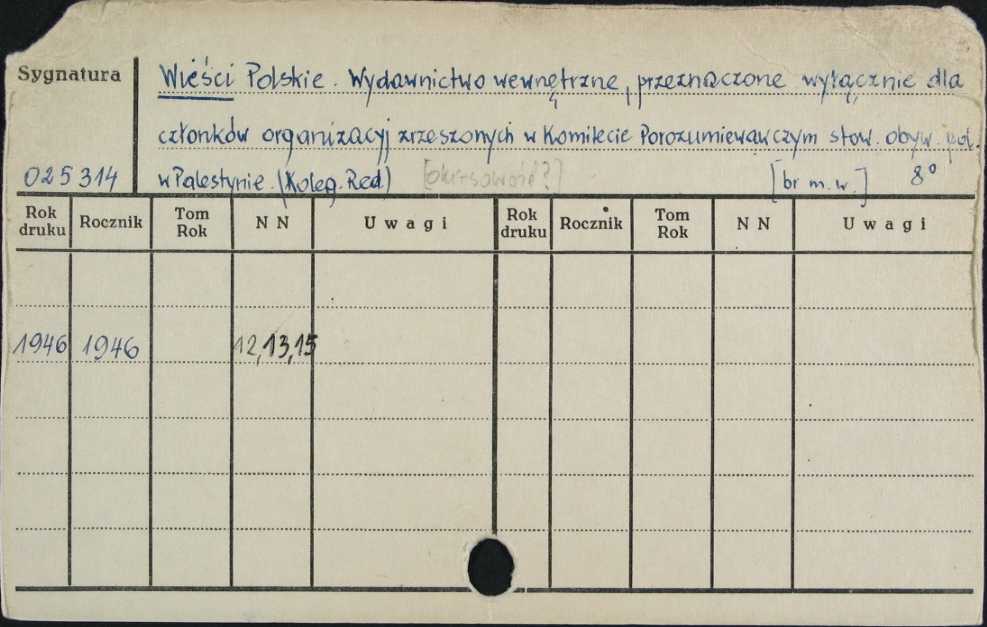 Sygnatura
Wieści Polskie. Wydawnictwo wewnętrzne, przeznaczone wyłącznie dla
członków organizacyj zrzeszonych w Komitecie Porozumiewawczym stow. obyw. pol.
025314 w Palestynie. (Koleg. Red.) [okresowość?] [br m. w.] 8°
Rok druku Rocznik Tom Rok N N Uwagi Rok druku Rocznik Tom Rok N N Uwagi
1946 1946 12, 13, 15